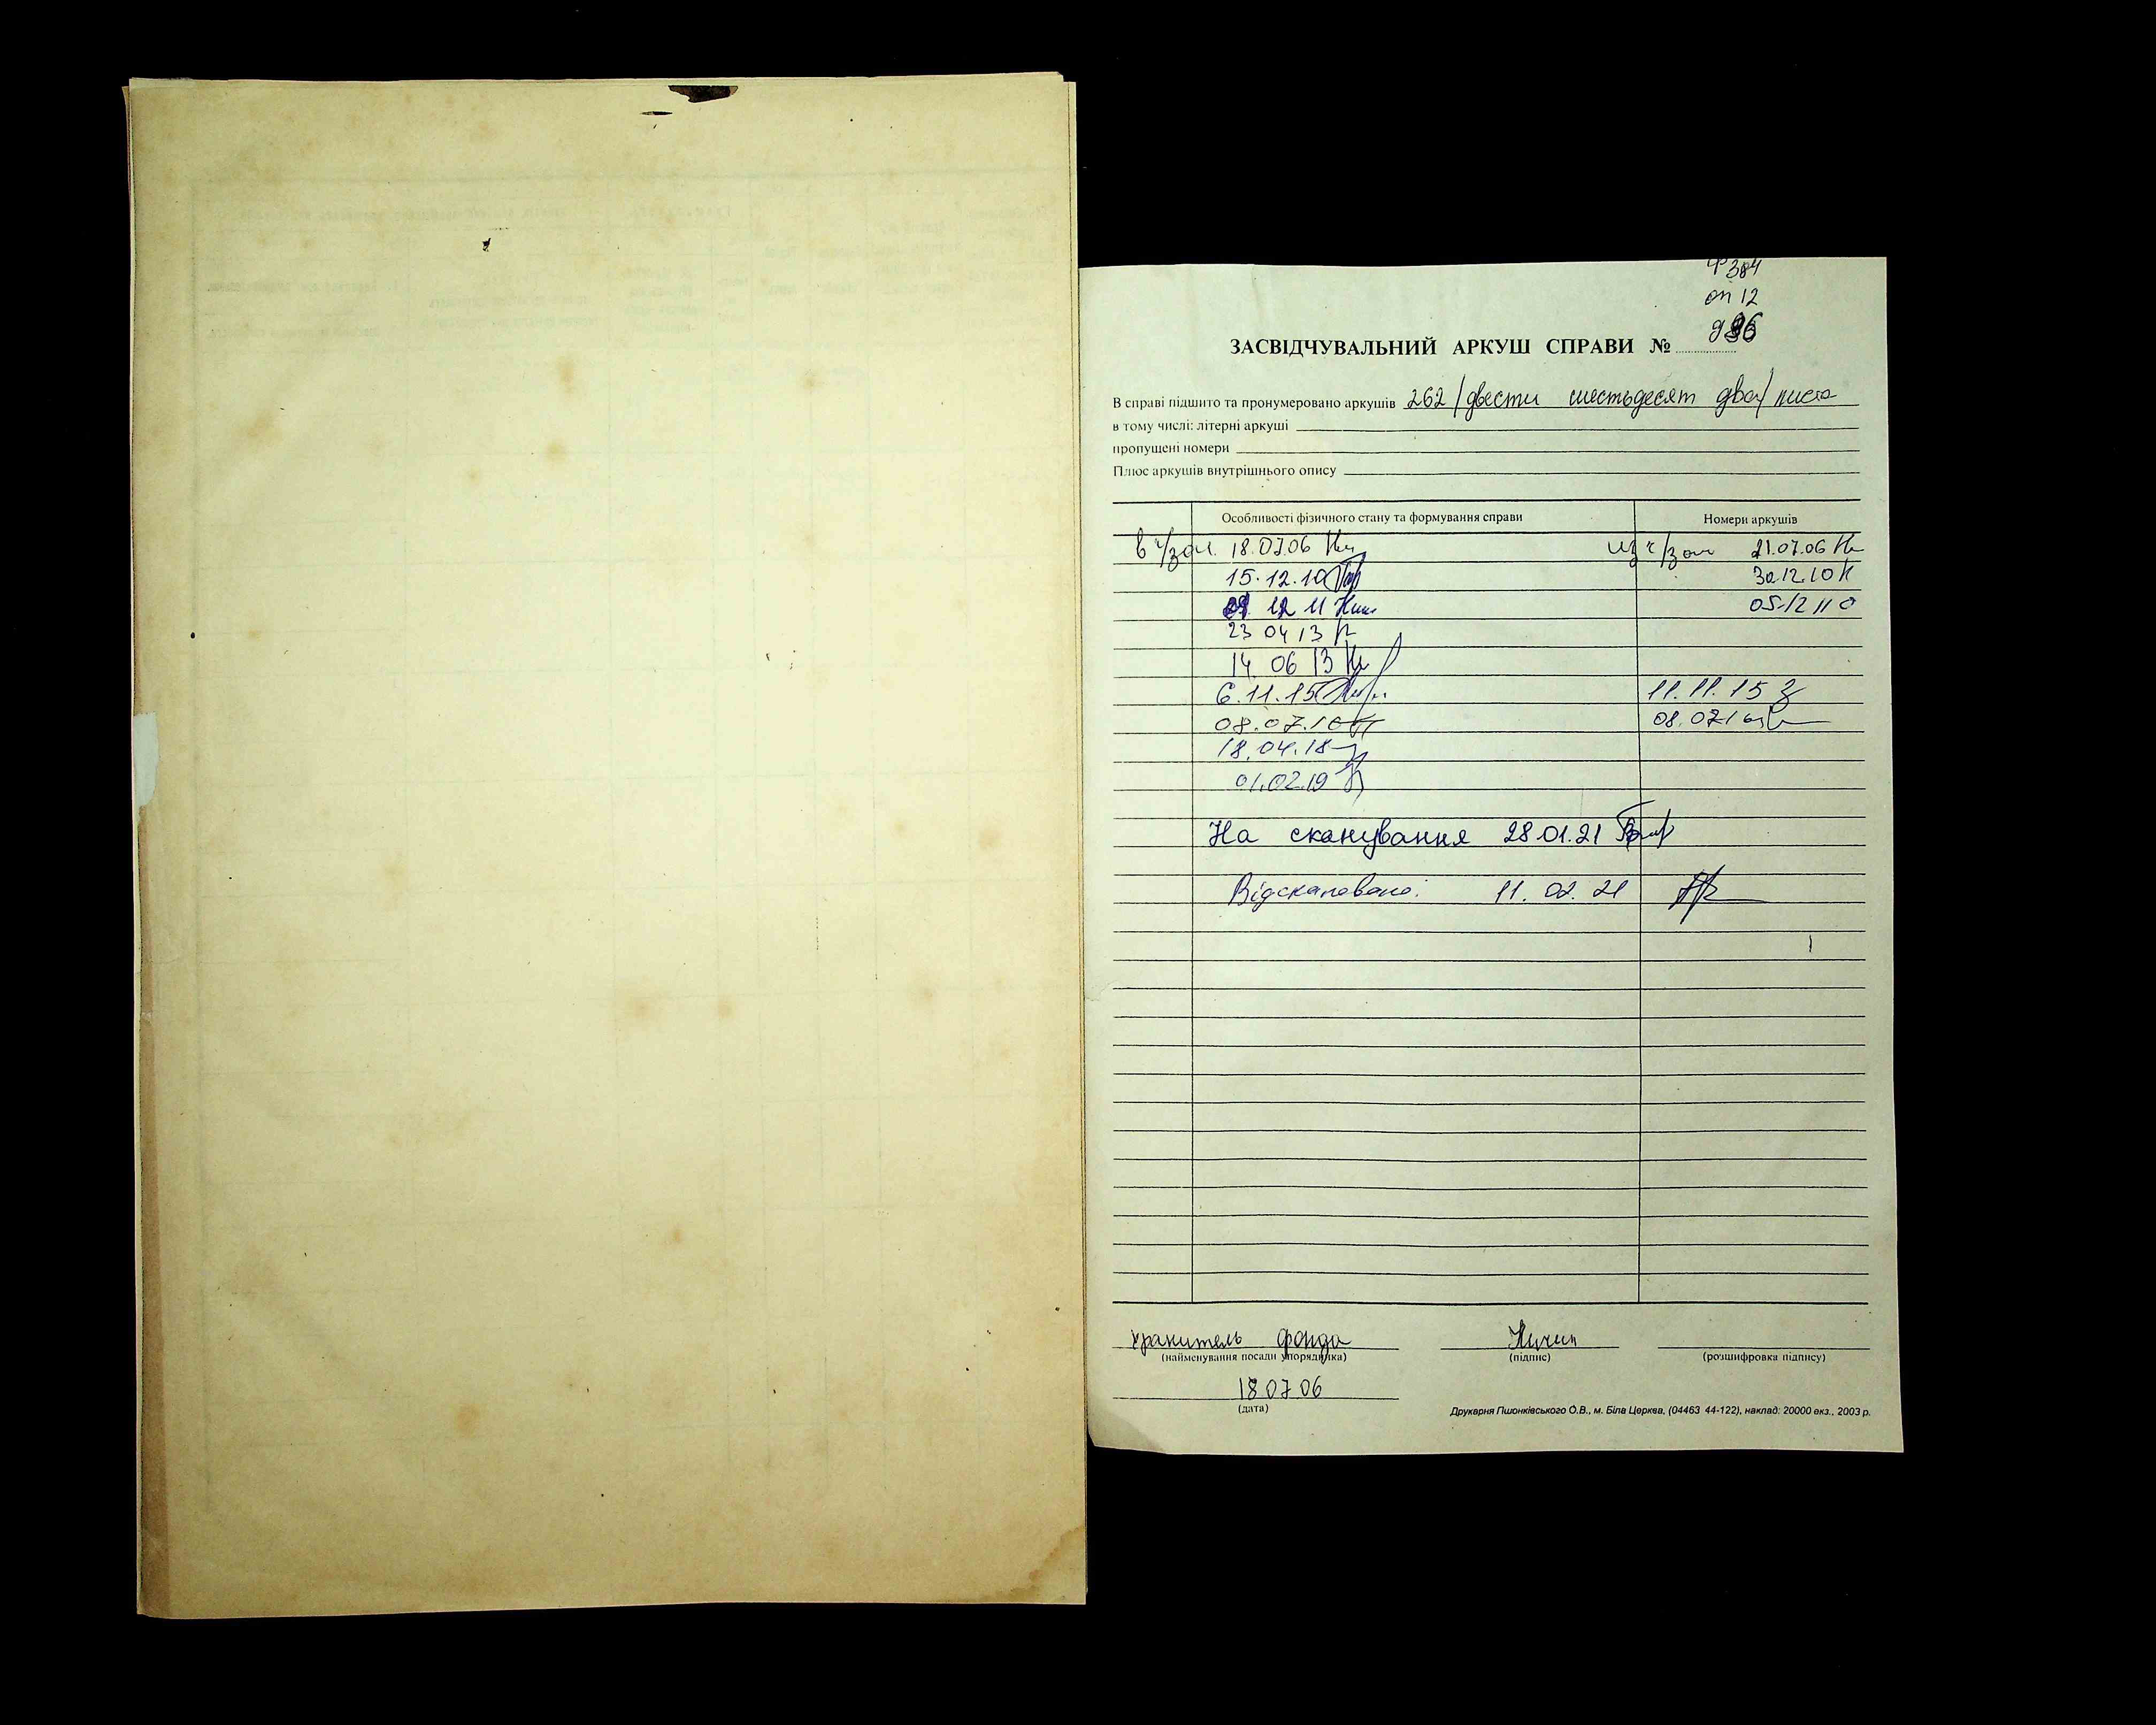 Ф384
оп 12
ЗАСВІДЧУВАЛЬНИЙ АРКУШ СПРАВИ №
В справі підшито та пронумеровано аркушів 262 /двести шестьдесят два/ листа
в тому числі: літерні аркуші
пропущені номери
Плюс аркушів внутрішнього опису
Особливості фізичного стану та формування справи Номери аркушів
в ч/зал. 18.07.06 из ч/зал 21.07.06
15.12.10 30.12.10
12 11 05.12 11
23 04 13
14. 06 13
6.11.15 11.11.15
08.07.16 08.07.16
18.04.18
01.02.19
На сканування 28.01.21
Відскановано: 11.02.21
хранитель фонда
(найменування посади упорядника) (підпис) (розшифровка підпису)
18.07.06
(дата)
Друкарня Пшонківського О.В., м. Біла Церква, (04463 44-122), наклад: 20000 екз., 2003 р.